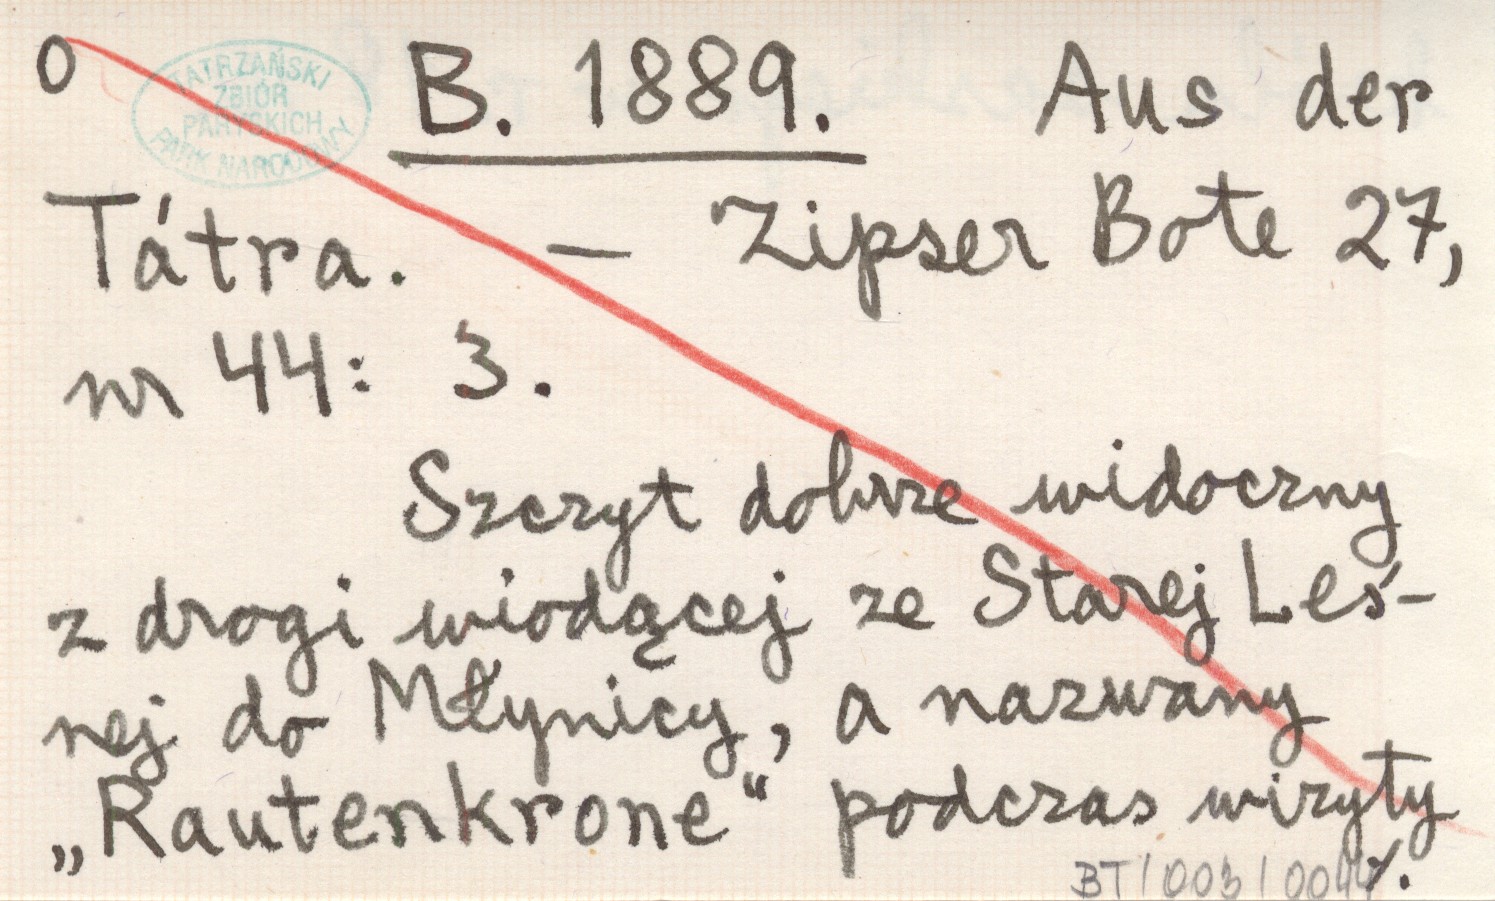 O B. 1889. Aus der
TATRZAŃSKI
ZBIÓR
PARYSKICH
PARK NARODOWY
Tátra. — Zipser Bote 27,
nr 44: 3.
Szczyt dobrze widoczny
z drogi wiodącej ze Starej Leś-
nej do Młynicy, a nazwany
„Rautenkrone" podczas wizyty
BT/003/0044 /.